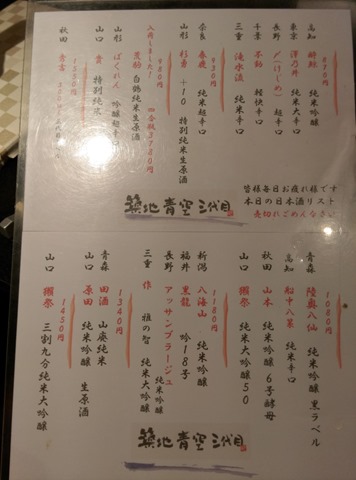 皆様毎日お疲れ様です
本日の日本酒リスト
売切れごめんなさい
870円
高知 酔鯨 純米吟醸
東京 澤乃井 純米大辛口
長野 〆(しめ) 超辛口
千葉 不動 軽快辛口
三重 滝水流 純米辛口
930円
奈良 春鹿 純米超辛口
山形 杉勇 +10 特別純米生原酒
入荷しました! 四合瓶3780円
菊勒 白鶴純米生原酒
980円
山形 ばくれん 吟醸超辛口
山口 貴 特別純米
1550円
秋田 秀雲
築地青空三代目
1080円
青森 陸奥八仙 純米吟醸 黒ラベル
高知 船中八策 純米辛口
秋田 山本 純米吟醸 6号酵母
山口 獺祭 純米大吟醸50
1180円
新潟 八海山 純米吟醸
福井 黒龍 吟18号
長野 アッサンブラージュ 純米吟醸
三重 作 雅の智 純米大吟醸
1340円
青森 田酒 山廃純米
山口 原田 純米吟醸 生原酒
1450円
山口 獺祭 三割九分純米大吟醸
築地青空三代目